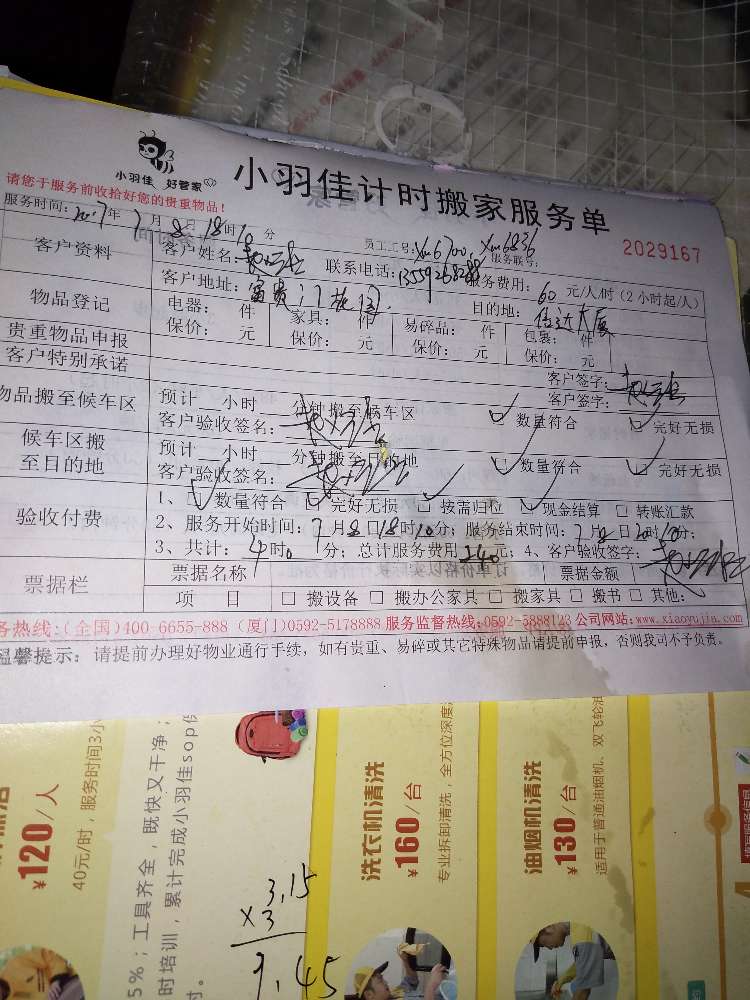 小羽佳 好管家
小羽佳计时搬家服务单
请您于服务前收拾好您的贵重物品!
服务时间: 2017年7月8日18时10分 员工工号: xm6700、xm6836 服务联号: 2029167
客户资料 客户姓名: 联系电话: 服务费用: 60 元/人/时(2小时起/人)
客户地址: 目的地:
物品登记 电器: 件 家具: 件 易碎品: 件 包裹: 件
保价: 元 保价: 元 保价: 元 保价: 元
贵重物品申报 客户签字:
客户特别承诺 客户签字:
物品搬至候车区 预计 小时 分钟搬至候车区 数量符合 完好无损
客户验收签名:
候车区搬至目的地 预计 小时 分钟搬至目的地 数量符合 完好无损
客户验收签名:
验收付费 1、数量符合 完好无损 按需归位 现金结算 转账汇款
2、服务开始时间: 7月8日18时10分; 服务结束时间: 7月8日20时10分;
3、共计: 4时0分; 总计服务费用240元; 4、客户验收签字:
票据栏 票据名称 票据金额
项 目 □ 搬设备 □ 搬办公家具 □ 搬家具 □ 搬书 □ 其他:
务热线:(全国)400-6655-888 (厦门)0592-5178888 服务监督热线:0592-5888123 公司网站:www.xiaoyujia.com
温馨提示: 请提前办理好物业通行手续, 如有贵重、易碎或其它特殊物品请提前申报, 否则我司不予负责。
¥120/人
40元/时, 服务时间3小
5%; 工具齐全, 既快又干净;
时培训, 累计完成小羽佳sop
3.15
×3
9.45
洗衣机清洗
¥160/台
专业拆卸清洗, 全方位深度
油烟机清洗
¥130/台
适用于普通油烟机、双飞轮油